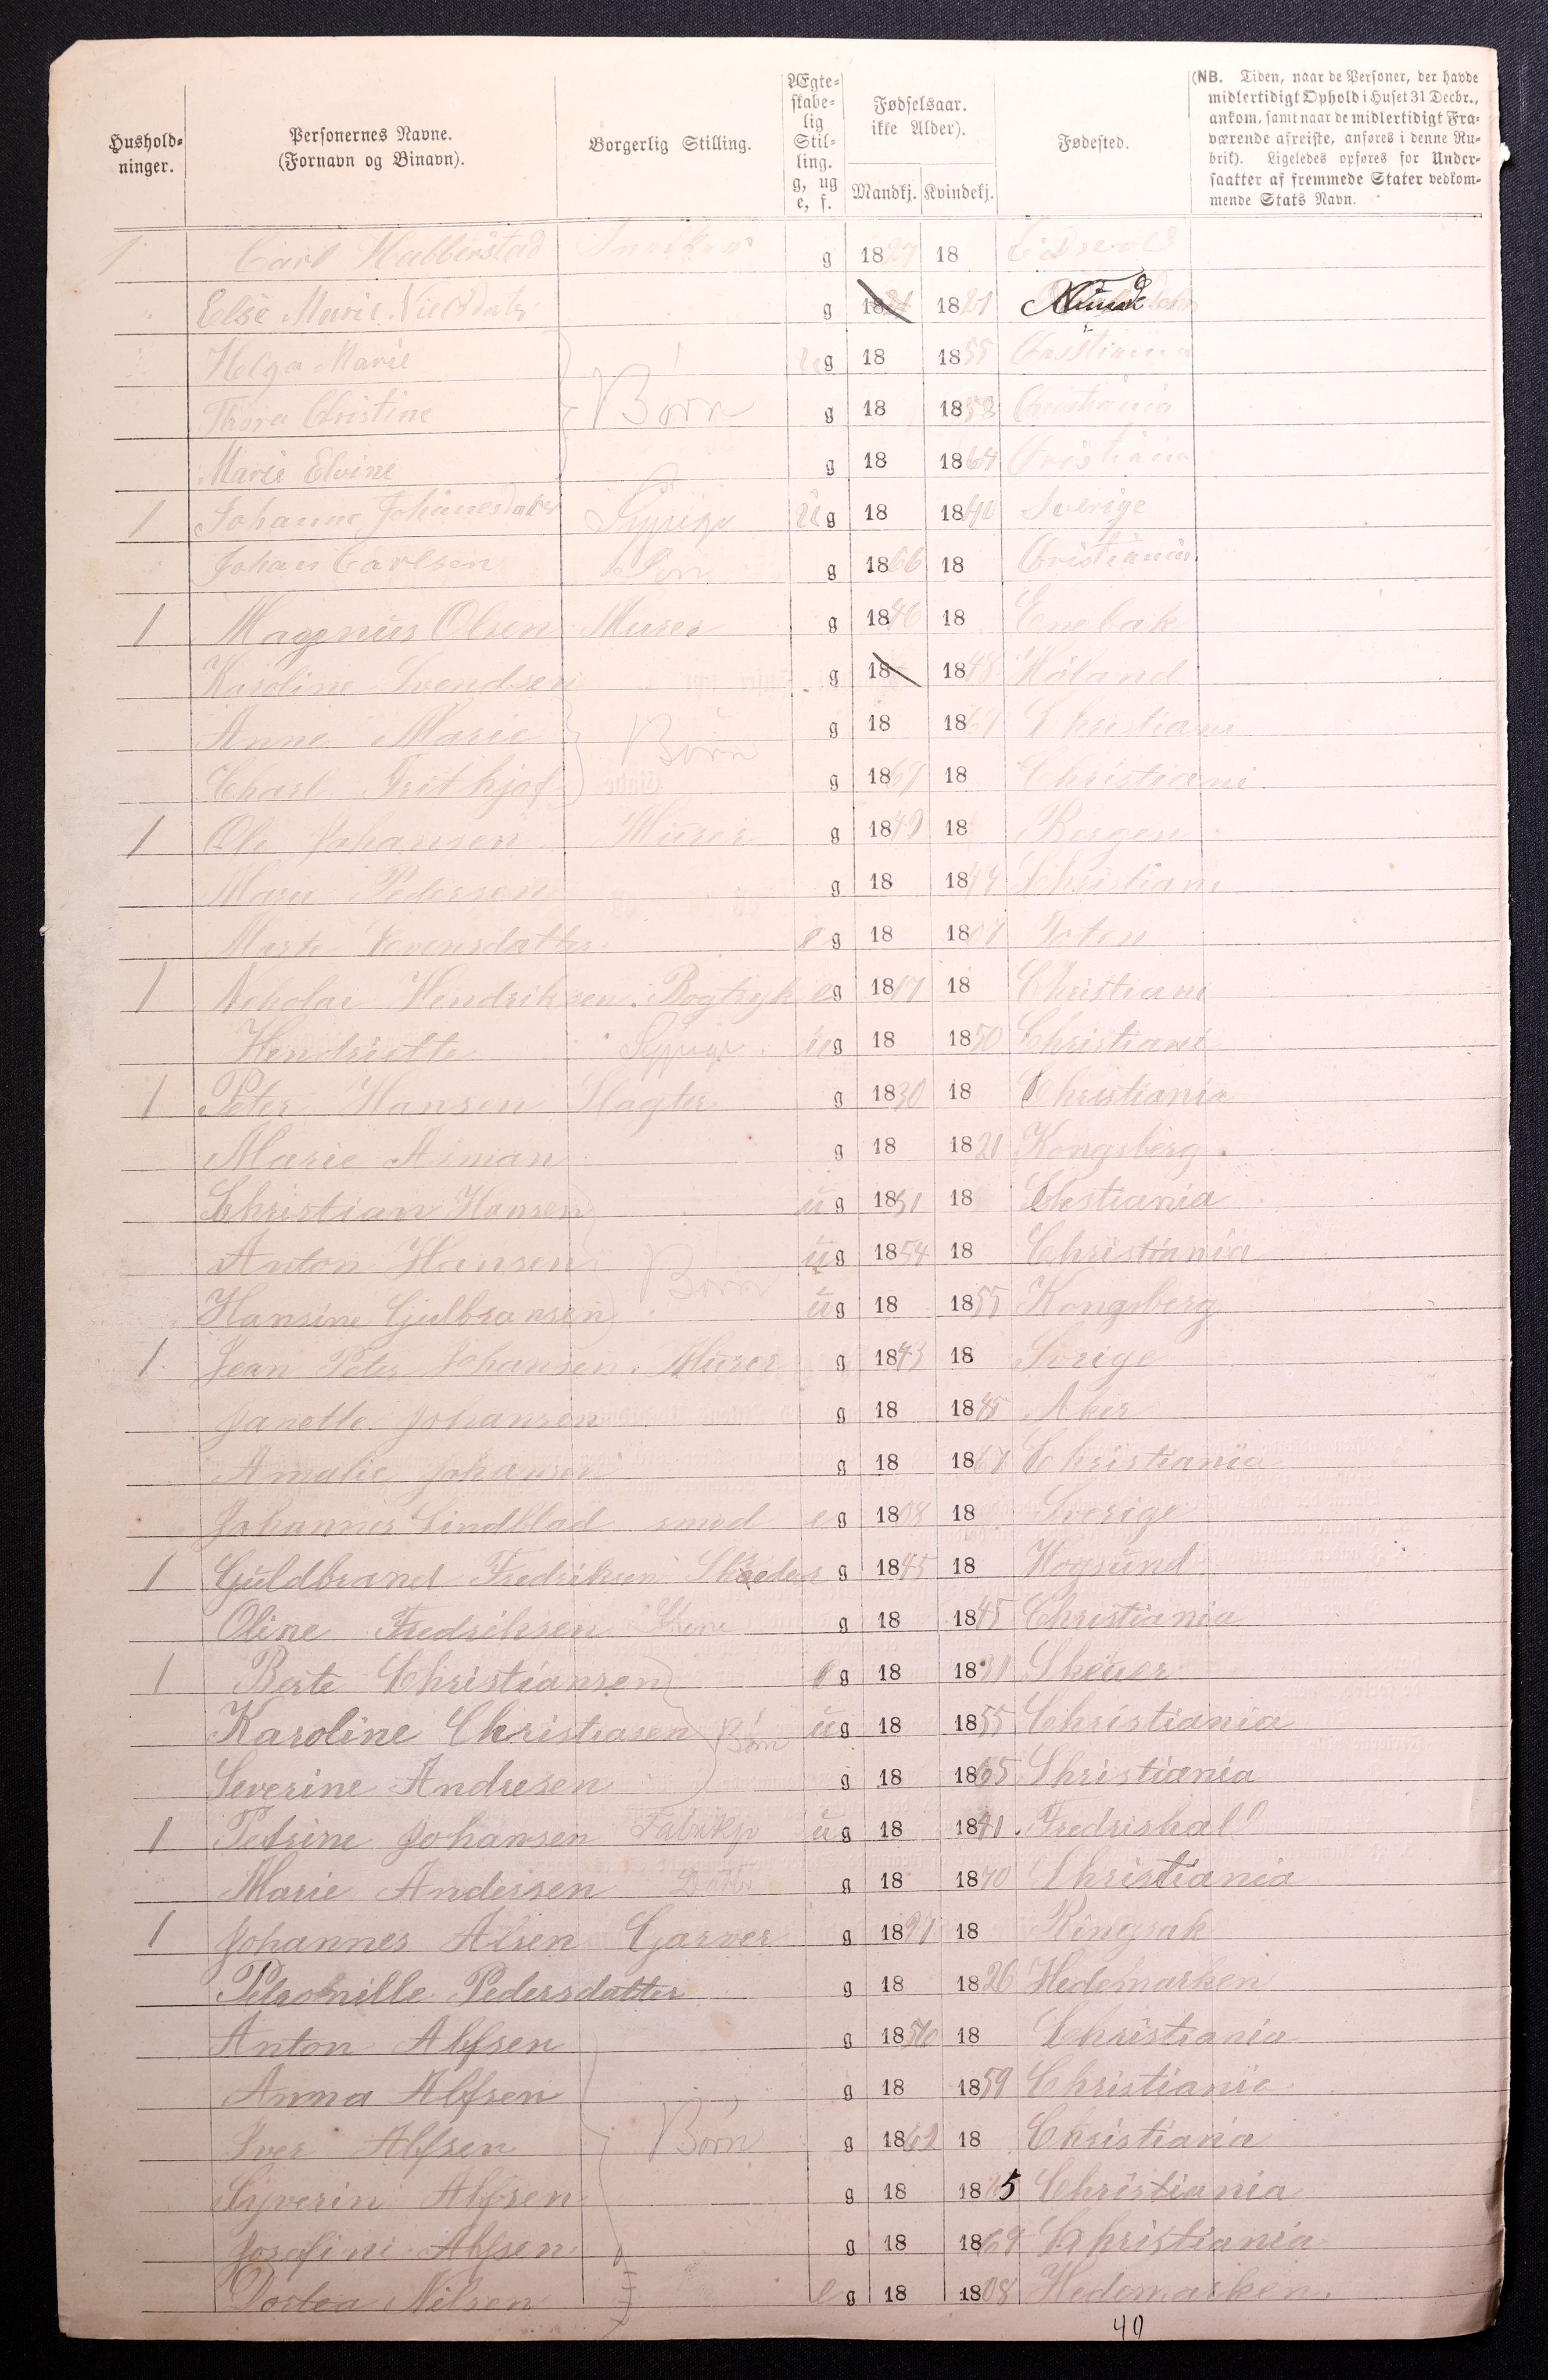 Hushold-
ninger.
Personernes Navne.
(Fornavn og Binavn).
Borgerlig Stilling.
Ægte-
skabe-
lig
Stil-
ling.
g, ug
e, f.
Fødselsaar.
ikke Alder).
Mandkj. Kvindekj.
Fødested.
(NB. Tiden, naar de Personer, der havde
midlertidigt Ophold i Huset 31 Decbr.,
ankom, samt naar de midlertidigt Fra-
værende afreiste, anføres i denne Ru-
brik). Ligeledes opføres for Under-
saatter af fremmede Stater vedkom-
mende Stats Navn.
1 Carl Habberstad Snedker g 1827 18 Eidsvold
Else Marie Nielsdatr g 18 1821
Helga Marie ug 18 1855 Christiania
Thora Christine Børn g 18 1858 Christiania
Marie Elvine g 18 1864 Christiania
1 Johanne Johanesdater Sypige ug 18 1840 Sverige
Johan Carlsen Søn g 1866 18 Cristiania
1 Magnus Olsen Murer g 1846 18 Enebak
Karoline Svendsen g 18 1848 Høland
Anne Marie Børn g 18 1867 Christiani
Charl Frithjof g 1869 18 Christiani
1 Ole Johansen Murer g 1849 18 Bergen
Marie Pedersen g 18 1844 Christiani
Marte Evensdatter eg 18 1807 Toten
1 Nikolai Hendriksen Bogtryk eg 1817 18 Christiani
Hendriette Sypige ug 18 1850 Christiani
1 Peter Hansen Slagter g 1830 18 Christiania
Marie Asman g 18 1821 Kongsberg
Christian Hansen ug 1851 18 Chestiania
Anton Hansen Børn ug 1854 18 Christiania
Hansine Gulbransen ug 18 1855 Kongsberg
1 Jean Peter Johansen Murer g 1843 18 Sverige
Janette Johansen g 18 1845 Aker
Amalie Johansen g 18 1867 Christiania
Johannes Lindblad smed eg 1808 18 Sverige
1 Guldbrand Fredriksen Skræder g 1845 18 Hogsund
Oline Fredriksen Kone g 18 1845 Christiania
1 Berte Christiansen eg 18 1831 Skeuer
Karoline Christiasen Børn ug 18 1855 Christiania
Severine Andresen g 18 1865 Christiania
1 Petrine Johansen Fabrikp ug 18 1841 Fredrishall
Marie Andersen Datter g 18 1870 Christiania
1 Johannes Alsen Garver g 1827 18 Ringsak
Petronille Pedersdatter g 18 1826 Hedemarken
Anton Alfsen g 1856 18 Christiania
Anna Alfsen g 18 1859 Christiania
Iver Alfsen Børn g 1862 18 Christiania
Syverin Alfsen g 18 1865 Christiania
Josefine Alfsen g 18 1869 Christiania
Dortea Nilsen eg 18 1808 Hedemarken.
40